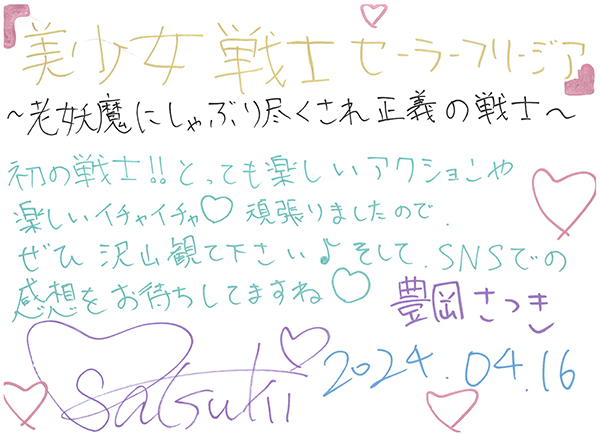 美少女戦士セーラーフリージア
~老妖魔にしゃぶり尽くされ正義の戦士~
初の戦士!!とっても楽しいアクションや
楽しいイチャイチャ♡頑張りましたので.
ぜひ沢山観て下さい♪そして.SNSでの
感想をお待ちしてますね♡
豊岡さつき
Satsuki
2024.04.16